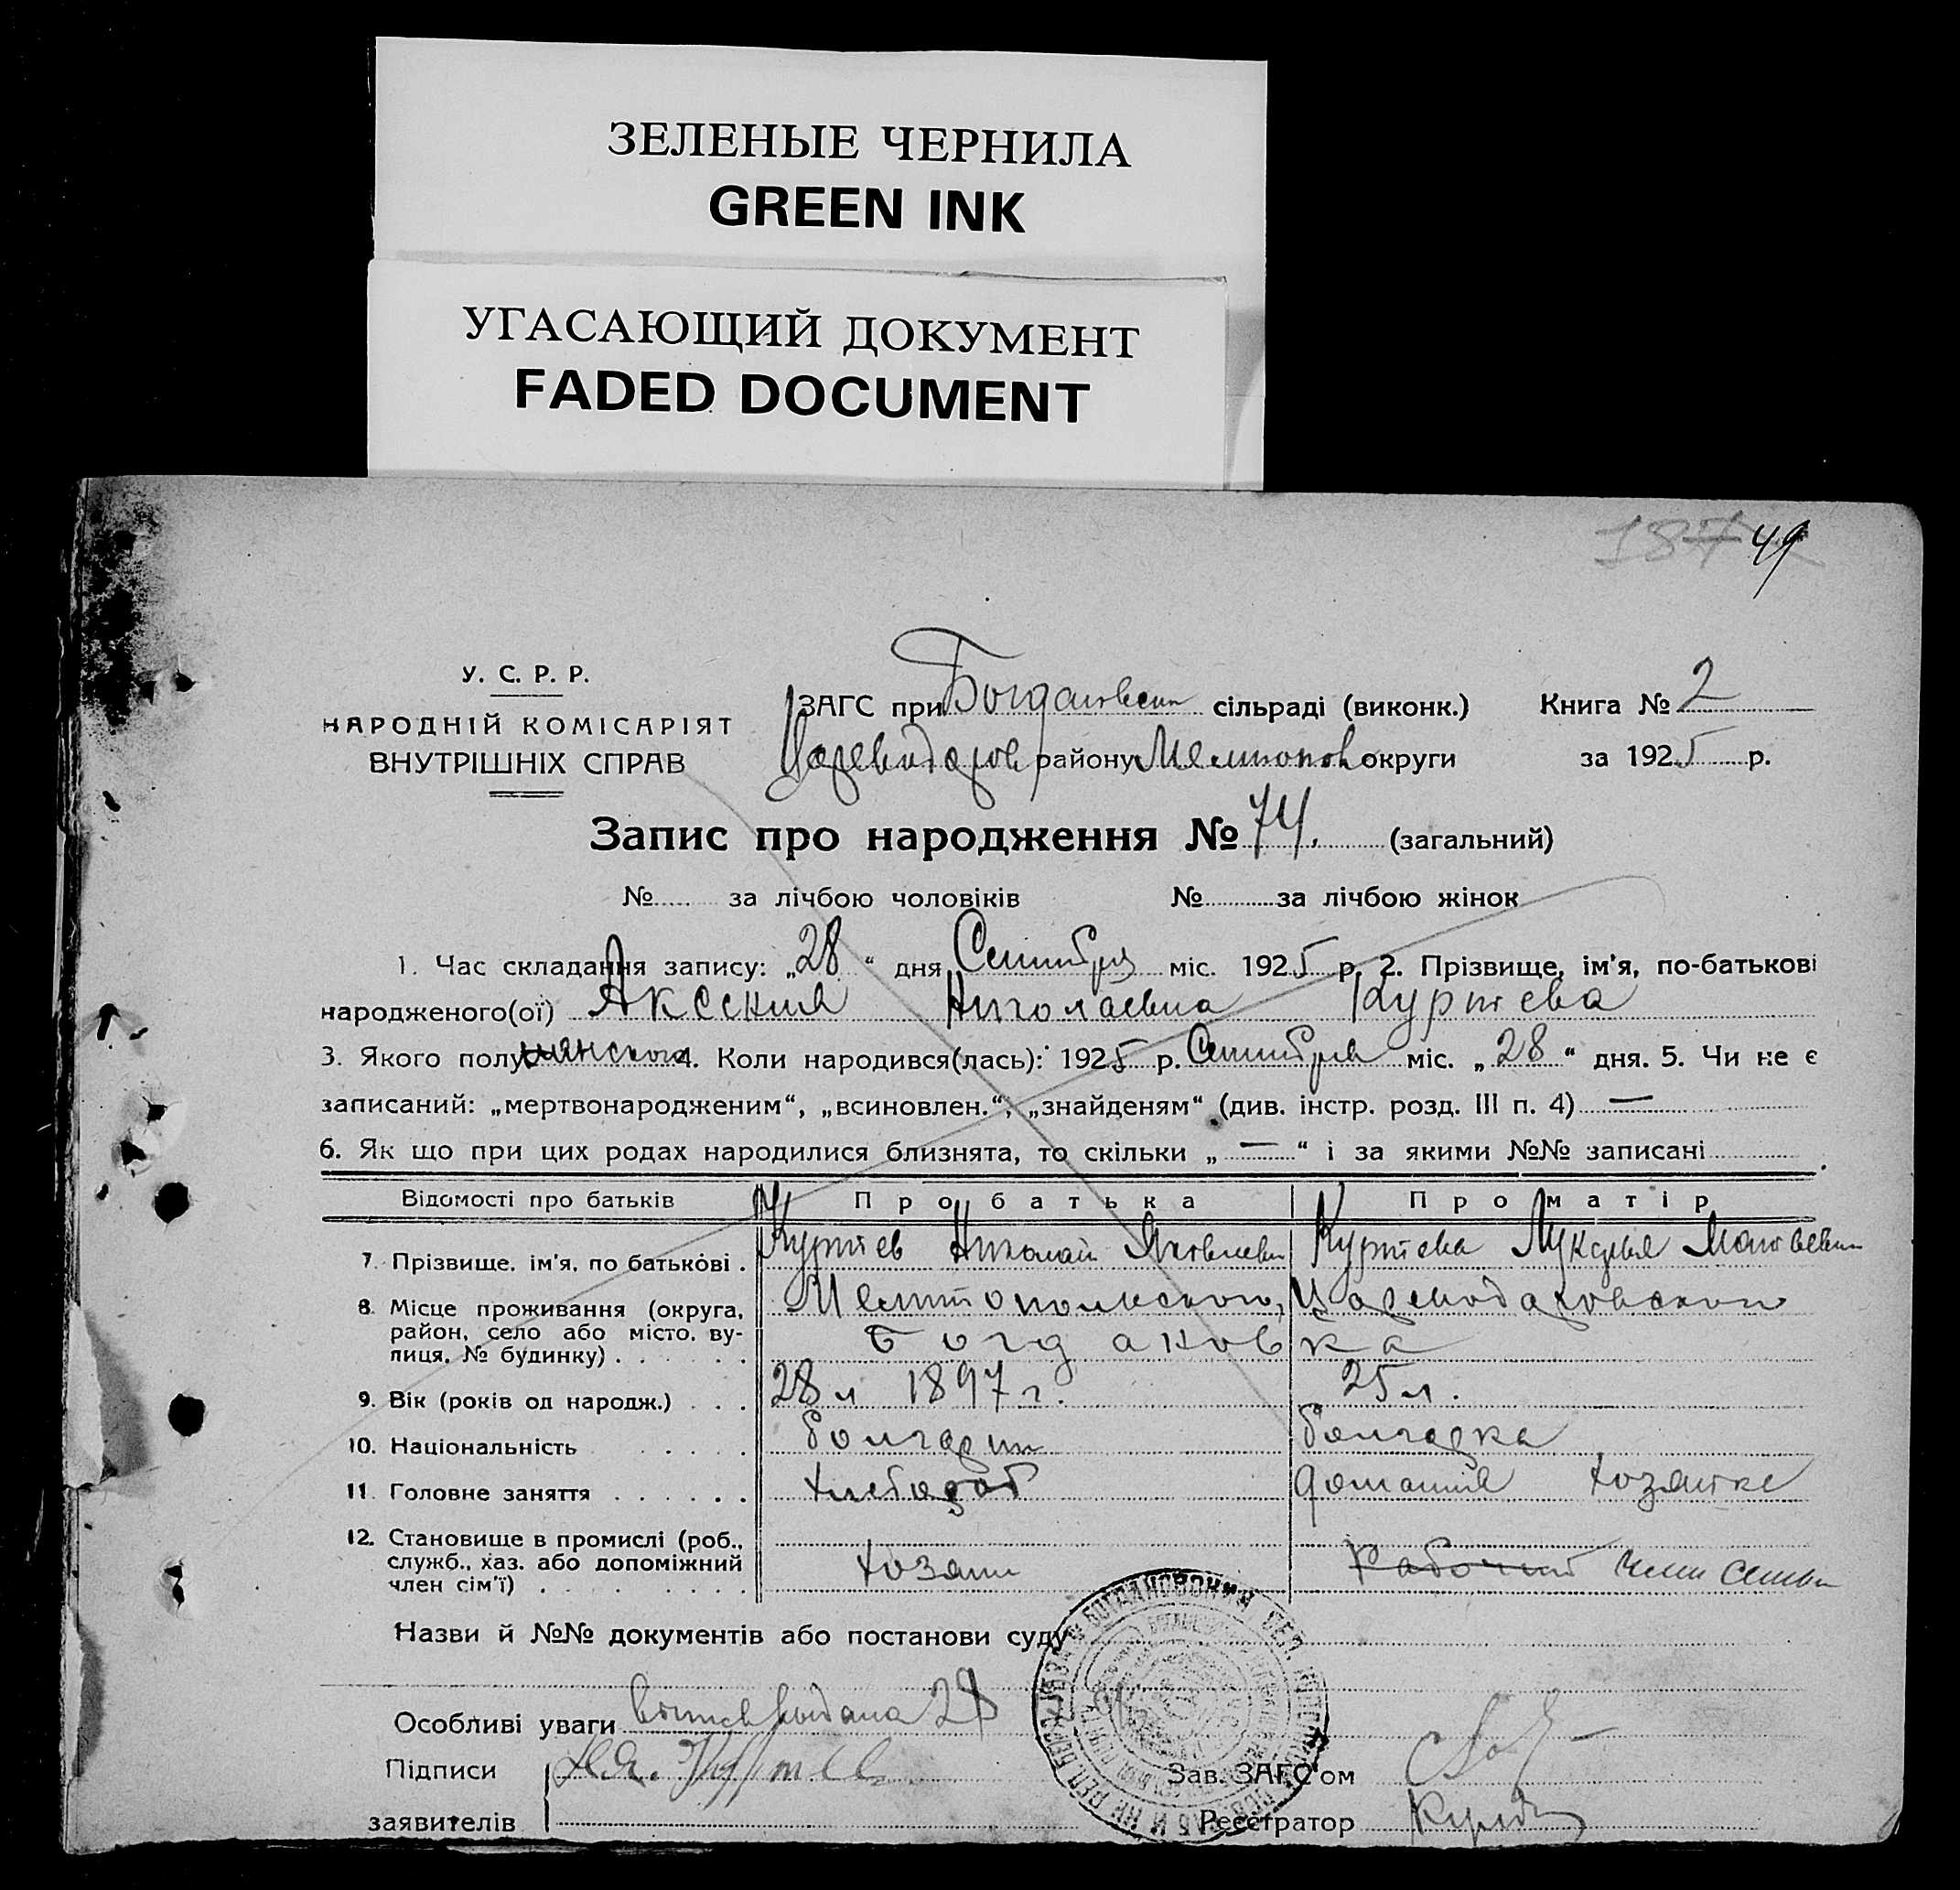 ЗЕЛЕНЫЕ ЧЕРНИЛА
GREEN INK
УГАСАЮЩИЙ ДОКУМЕНТ
FADED DOCUMENT
187 49
У. С. Р. Р.
НАРОДНІЙ КОМІСАРІЯТ
ВНУТРІШНІХ СПРАВ
ЗАГС при Богдановск сільраді (виконк.) Книга № 2
району округи за 1925 р.
Запис про народження № 74. (загальний)
№ за лічбою чоловіків № за лічбою жінок
1. Час складання запису: „28“ дня Сентября міс. 1925 р. 2. Прізвище, ім'я, по-батькові
народженого(ої) Аксения Николаевна Куртева
3. Якого полу женского 4. Коли народився(лась): 1925 р. Сентября міс. „28“ дня. 5. Чи не є
записаний: „мертвонародженим“, „всиновлен.“, „знайденям“ (див. інстр. розд. III п. 4) —
6. Як що при цих родах народилися близнята, то скільки „—“ і за якими №№ записані
Відомості про батьків Про батька Про матір
7. Прізвище, ім'я, по батькові . Куртев Николай Яковлеви Куртева Лукерья Матвевн
8. Місце проживання (округа, район, село або місто, ву-лиця, № будинку) . Мелитопольского, Цареводаровского
Богдановка
9. Вік (років од народж.) . . . 28 л 1897 г. 25 л.
10. Національність . . . . Болгарин Болгарка
11. Головне заняття . . . . . . Хлебороб домашня хозяйке
12. Становище в промислі (роб., служб., хаз. або допоміжний член сім'ї) . . . . . . хозяин Рабочий член семьи
Назви й №№ документів або постанови суду
Особливі уваги выдана 28
Підписи Н.Я. Куртев Зав. ЗАГС'ом
заявителів Реєстратор